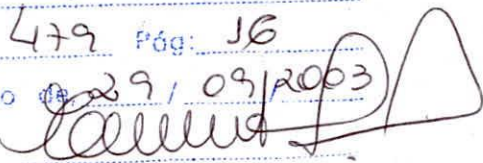 479 Pág: 16
o de 29 / 09 / 2003